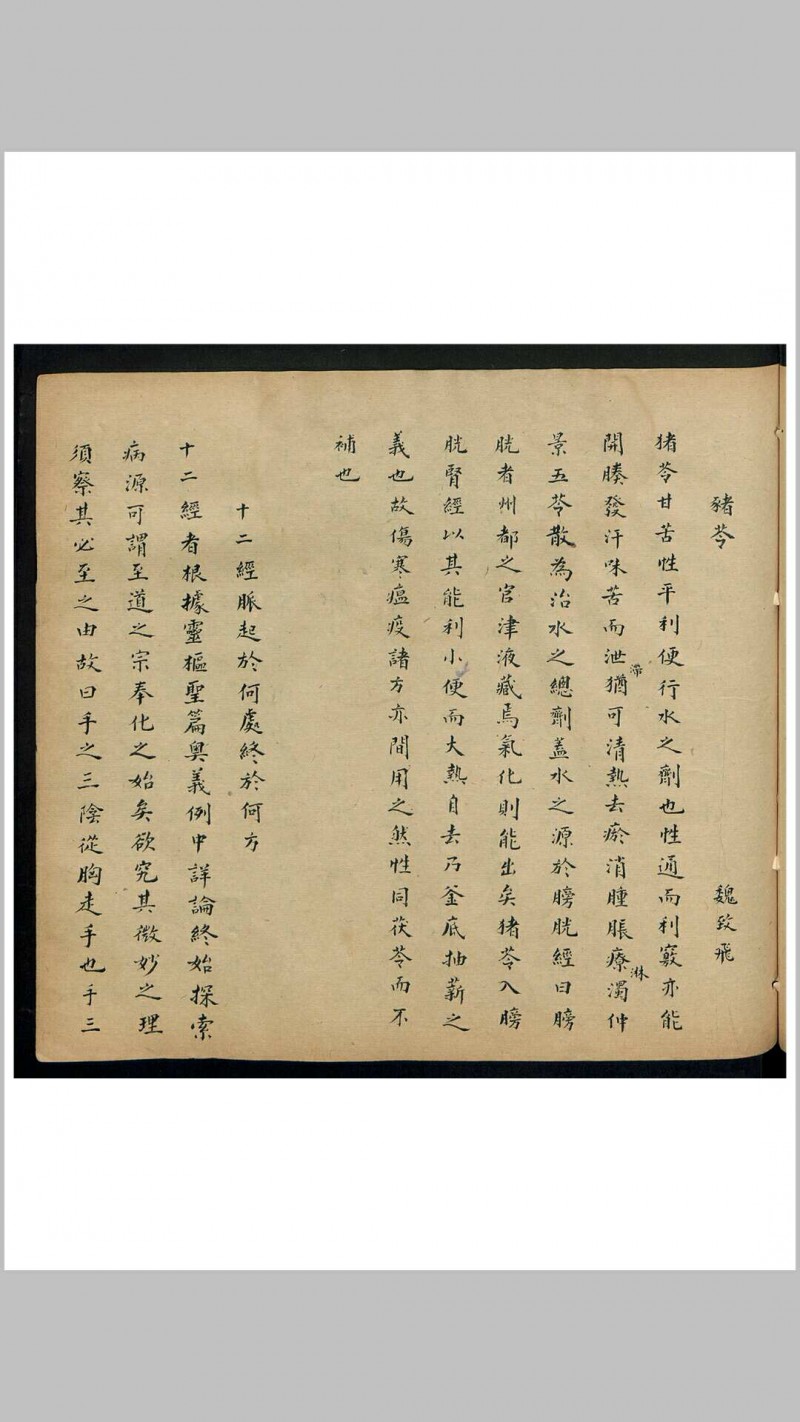 豬苓 魏致飛
猪苓甘苦性平利便行水之劑也性通而利竅亦能
開腠發汗味苦而泄滯猶可清熱去瘀消腫脹療淋濁仲
景五苓散為治水之總劑蓋水之源於膀胱經曰膀
胱者州都之官津液藏焉氣化則能出矣猪苓入膀
胱腎經以其能利小便而大熱自去乃釜底抽薪之
義也故傷寒瘟疫諸方亦間用之然性同茯苓而不
補也
十二經脈起於何處終於何方
十二經者根據靈樞聖篇奧義例中詳論終始探索
病源可謂至道之宗奉化之始矣欲究其微妙之理
須察其必至之由故曰手之三陰從胸走手也手三